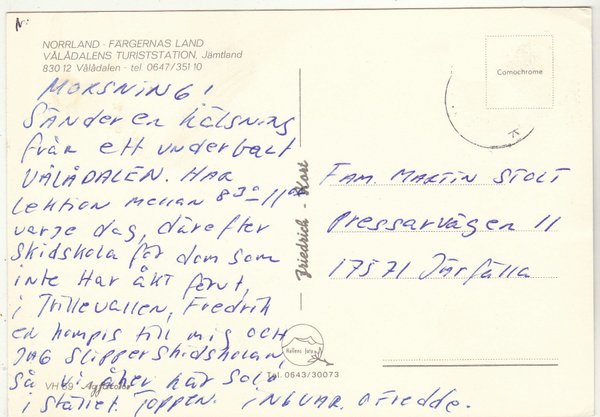 NORRLAND - FÄRGERNAS LAND
VÅLÅDALENS TURISTSTATION, Jämtland
830 12 Vålådalen - tel. 0647/351 10
MORSNING!
SÄNDER EN HÄLSNING
från ett underbart
VÅLÅDALEN. HAR
Lektion mellan 8 30 - 11 00
varje dag, därefter
skidskola för dom som
inte Har åkt förut,
i Trillevallen, Fredrik
en kompis till mig OCH
JAG slipper skidskolan,
så vi åker här
i stället. Toppen. INGVAR. O Fredde.
Comochrome
FAM. MARTIN STOLT
Pressarvägen 11
175 71 Järfälla
Friedrich - Kort
Hallens foto
Tel. 0643/30073
VH 89